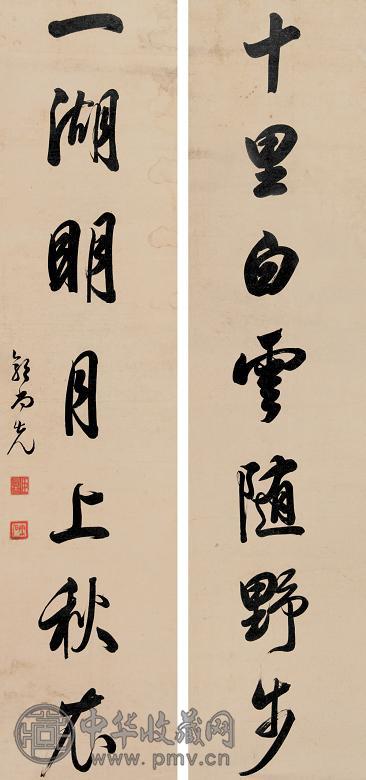 十里白雲随野步
一湖明月上秋衣
郭尚先
中华收藏网
www.pmv.cn